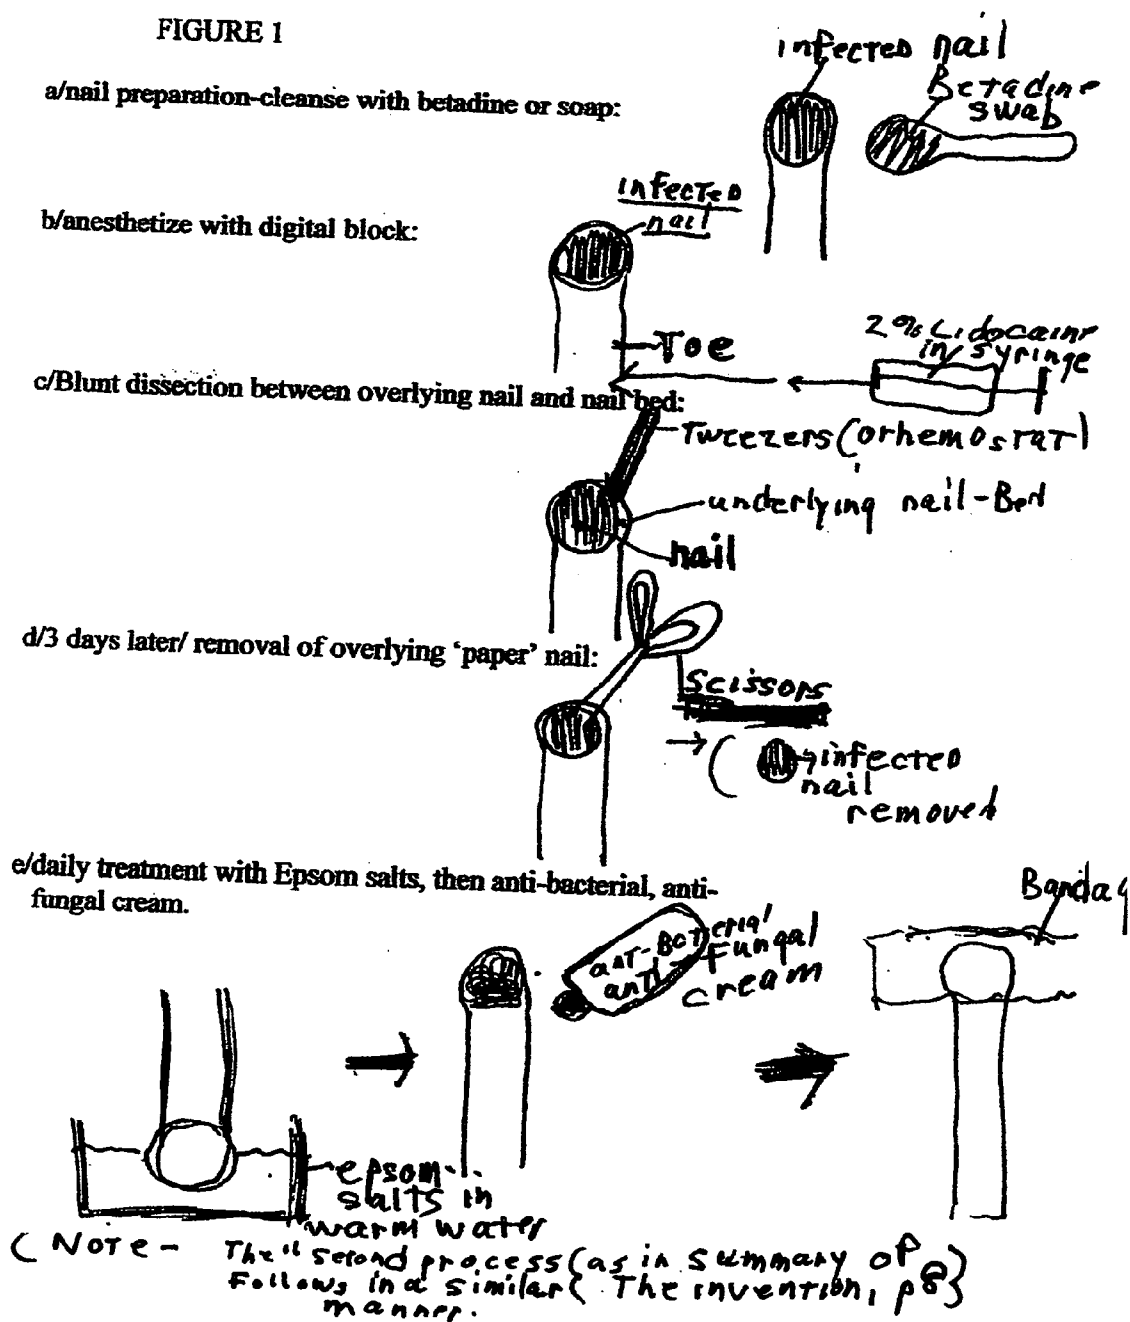 FIGURE 1
infected nail
a/nail preparation-cleanse with betadine or soap:
Betadine
swab
infected
nail
b/anesthetize with digital block:
2% Lidocaine
in syringe
Toe
c/Blunt dissection between overlying nail and nail bed:
Tweezers (or hemostat)
underlying nail-Bed
nail
d/3 days later/ removal of overlying ‘paper’ nail:
scissors
infected
nail
removed
e/daily treatment with Epsom salts, then anti-bacterial, anti-
fungal cream.
Bandag
anti-fungal
cream
epsom
salts in
warm water
( Note - The "second process (as in summary of
Follows in a similar ( The invention, p
manner.